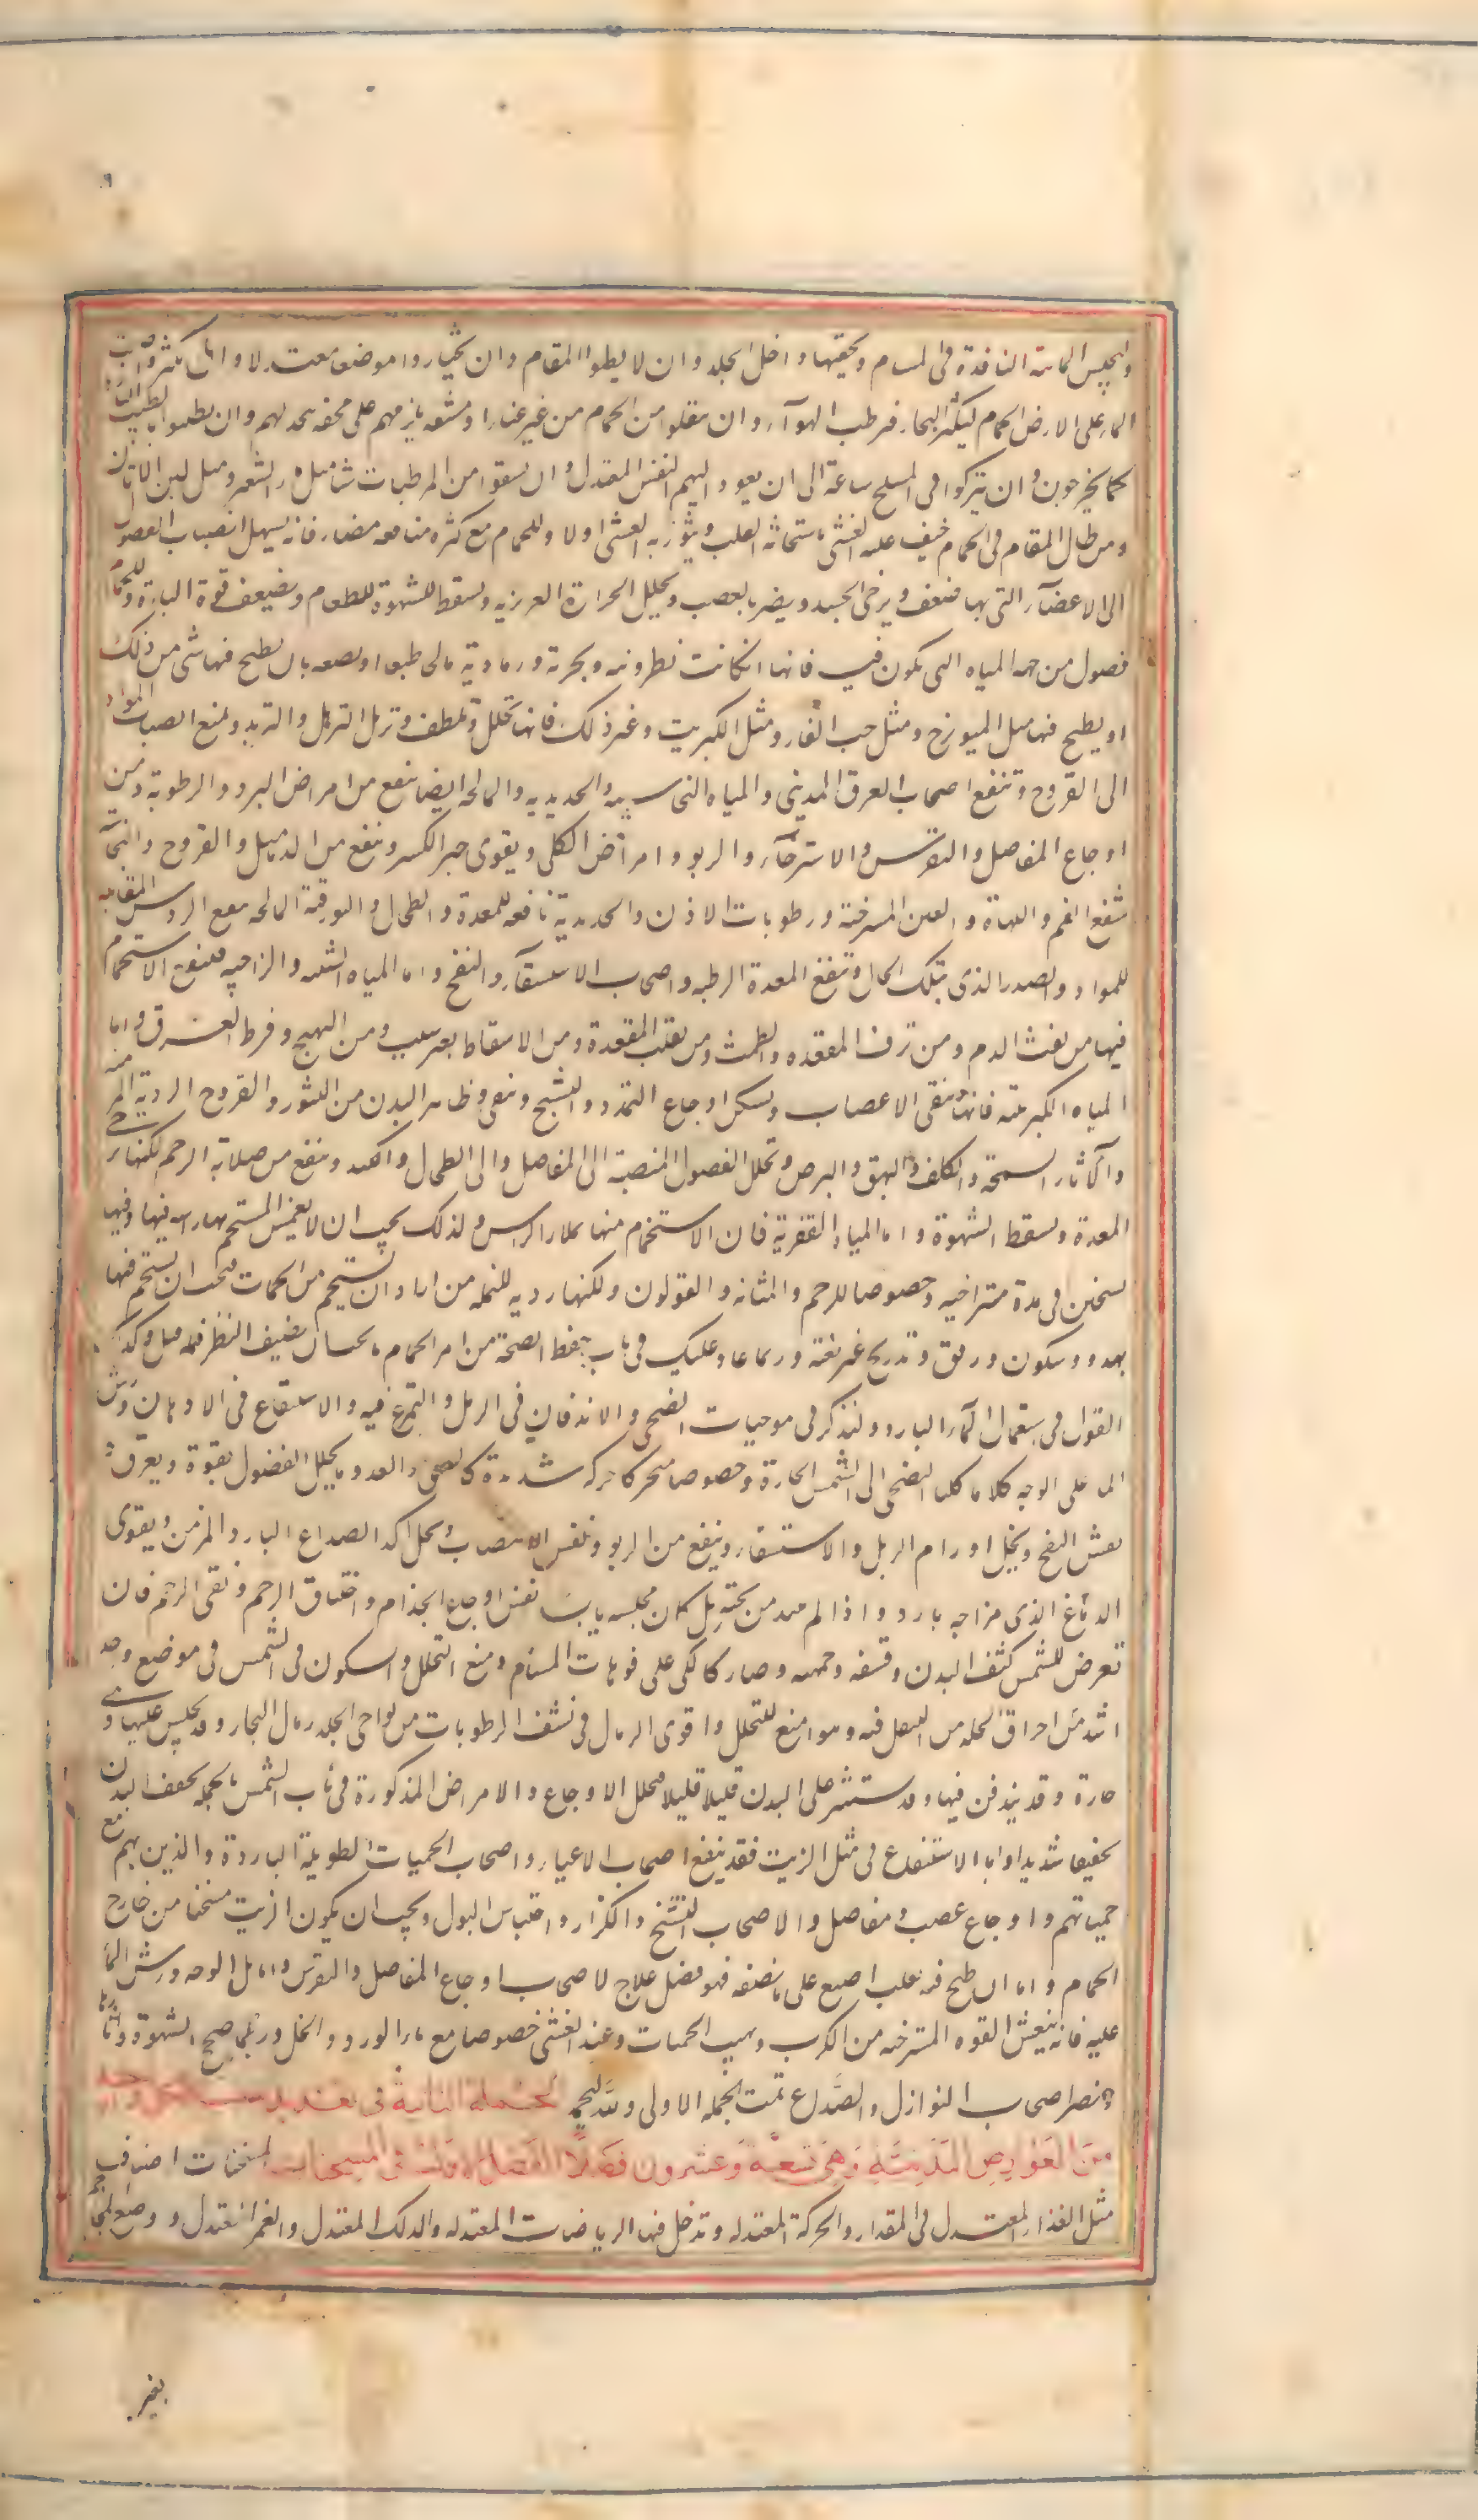 وليحبس المائية النافذة فى المسام ويحقنها داخل الجلد وان لا يطيلوا المقام وان يختاروا موضعا معتدلا واما
الماء على الارض الحمام ليكثر البخار فيرطب الهوآء وان ينقلوا من الحمام من غير عناء ومشقة يلزمهم على محفة تتخذ لهم وان يطيبوا بالطيب البارد
كما يخرجون وان يتركوا فى المسلخ ساعة الى ان يعود اليهم النفس المعتدل وان يسقوا من المرطبات شيأ مثل ماء الشعير ومثل لبن الاتان
ومن طال المقام فى الحمام خيف عليه الغشى باسخانه القلب ويثور به الغشى اولا وللحمام مع كثرة منافعه مضار فانه يسهل انصباب الفضول
الى الاعضآء التى بها ضعف ويرخى الجسد ويضر بالعصب ويحلل الحرارة الغريزية ويسقط الشهوة للطعام ويضعف قوة الباه وللحمام
فصول من جهة المياه التى تكون فيه فانها ان كانت نطرونية وبحرية ورمادية مالحة طبعا او بصنعة بان يطبخ فيها شى من ذلك
او يطبخ فيها مثل الميوزج ومثل حب الغار ومثل الكبريت وغير ذلك فانها تحلل وتلطف وتزيل الترهل والتربد وتمنع انصباب المواد
الى القروح وتنفع اصحاب العرق المدينى والمياه النحاسية والحديدية والمالحة ايضا تنفع من امراض البرد والرطوبة ومن
اوجاع المفاصل والنقرس والاسترخآء والربو وامراض الكلى ويقوى جبر الكسر وينفع من الدماميل والقروح والنحاسية
تنفع الفم واللهاة والعين المسترخية ورطوبات الاذن والحديدية نافعة للمعدة والطحال والبورقية المالحة تنفع الروس القابلة
للمواد والصدر الذى بتلك الحال وتنفع المعدة الرطبة واصحاب الاستسقآء والنفخ واما المياه الشبية والزاجية فينفع الاستحمام
فيها من نفث الدم ومن نزف المقعدة والطمث ومن تقلب المقعدة ومن الاسقاط بغير سبب ومن التهيج وفرط العرق واما
المياه الكبريتية فانها تنقى الاعصاب وتسكن اوجاع التمدد والتشنج وتنقى ظاهر البدن من البثور والقروح الردية المزمنة
والآثار السمجة والكلف والبهق والبرص وتحلل الفضول المنصبة الى المفاصل والى الطحال والكبد وتنفع من صلابة الرحم لكنها ترخى
المعدة وتسقط الشهوة واما المياه القفرية فان الاستحمام منها يملأ الراس ولذلك يجب ان لا يغمس المستحم بها راسه فيها وفيها
تسخين فى مدة متراخية وخصوصا للرحم والمثانة والقولون ولكنها ردية للنساء ومن اراد ان يستحم من الحمات فيجب ان يستحم فيها
بهدو وسكون ورفق وتدريج غير بغتة وربما عاد عليك فى باب حفظ الصحة من امر الحمام ما يجب ان يضيف النظر فيه الى ما قيل وكذلك
القول فى استعمال المآء البارد ولنذكر فى موجبات التضحى والاندفان فى الرمل والتمرغ فيه والاستنقاع فى الادهان ورش
الما على الوجه كلاما كليا التضحى الى الشمس الحارة وخصوصا متحركا حركة شديدة كالسعى والعدو مما يحلل الفضول بقوة ويعرق و
يفش النفخ ويحلل اورام التربل والاستسقاء وينفع من الربو ونفس الانتصاب ويحلل الصداع البارد المزمن ويقوى
الدماغ الذى مزاجه بارد واذا لم يبتل من تحته بل كان مجلسه يابسا نفع اوجاع الجذام واختناق الرحم ونقى الرحم فان
تعرض للشمس كثف البدن وقشفه وحممه وصار كالكى على فوهات المسام ومنع التحلل والسكون فى الشمس فى موضع واحد
اشد فى احراق الجلد من التنقل فيه وهو امنع للتحلل واقوى الرمال فى نشف الرطوبات من نواحى الجلد رمال البحار وقد يجلس عليها وهى
حارة وقد يندفن فيها وقد ستنثر على البدن قليلا قليلا فيحلل الاوجاع والامراض المذكورة فى باب الشمس بالجملة يجفف البدن
تجفيفا شديدا واما الاستنقاع فى مثل الزيت فقد ينفع اصحاب الاعياء واصحاب الحميات الطويلة الباردة والذين بهم مع
حمياتهم واوجاع عصب ومفاصل والاصحاب التشنج والكزاز واحتباس البول ويجب ان يكون الزيت مسخنا من خارج
الحمام واما ان طبخ فيه ثعلب او ضبع على ما نصفه فهو افضل علاج لاصحاب اوجاع المفاصل والنقرس واما بل الوجه ورش الما
عليه فانه ينعش القوة المسترخية من الكرب ولهيب الحميات وعند الغشى خصوصا مع ماء الورد والخل وربما صحح الشهوة واثارها
ويضر اصحاب النوازل والصداع تمت الجملة الاولى ولله الحمد الجملة الثانية فى تعديد سبب كل واحد
من العوارض البدنية وهى تسعة وعشرون فصلا الفصل الاول فى المسخنات المسخنات اصناف
مثل الغذاء المعتدل فى المقدار والحركة المعتدلة وتدخل فيها الرياضات المعتدلة والدلك المعتدل والغمز المعتدل ووضع المحاجم
بغير